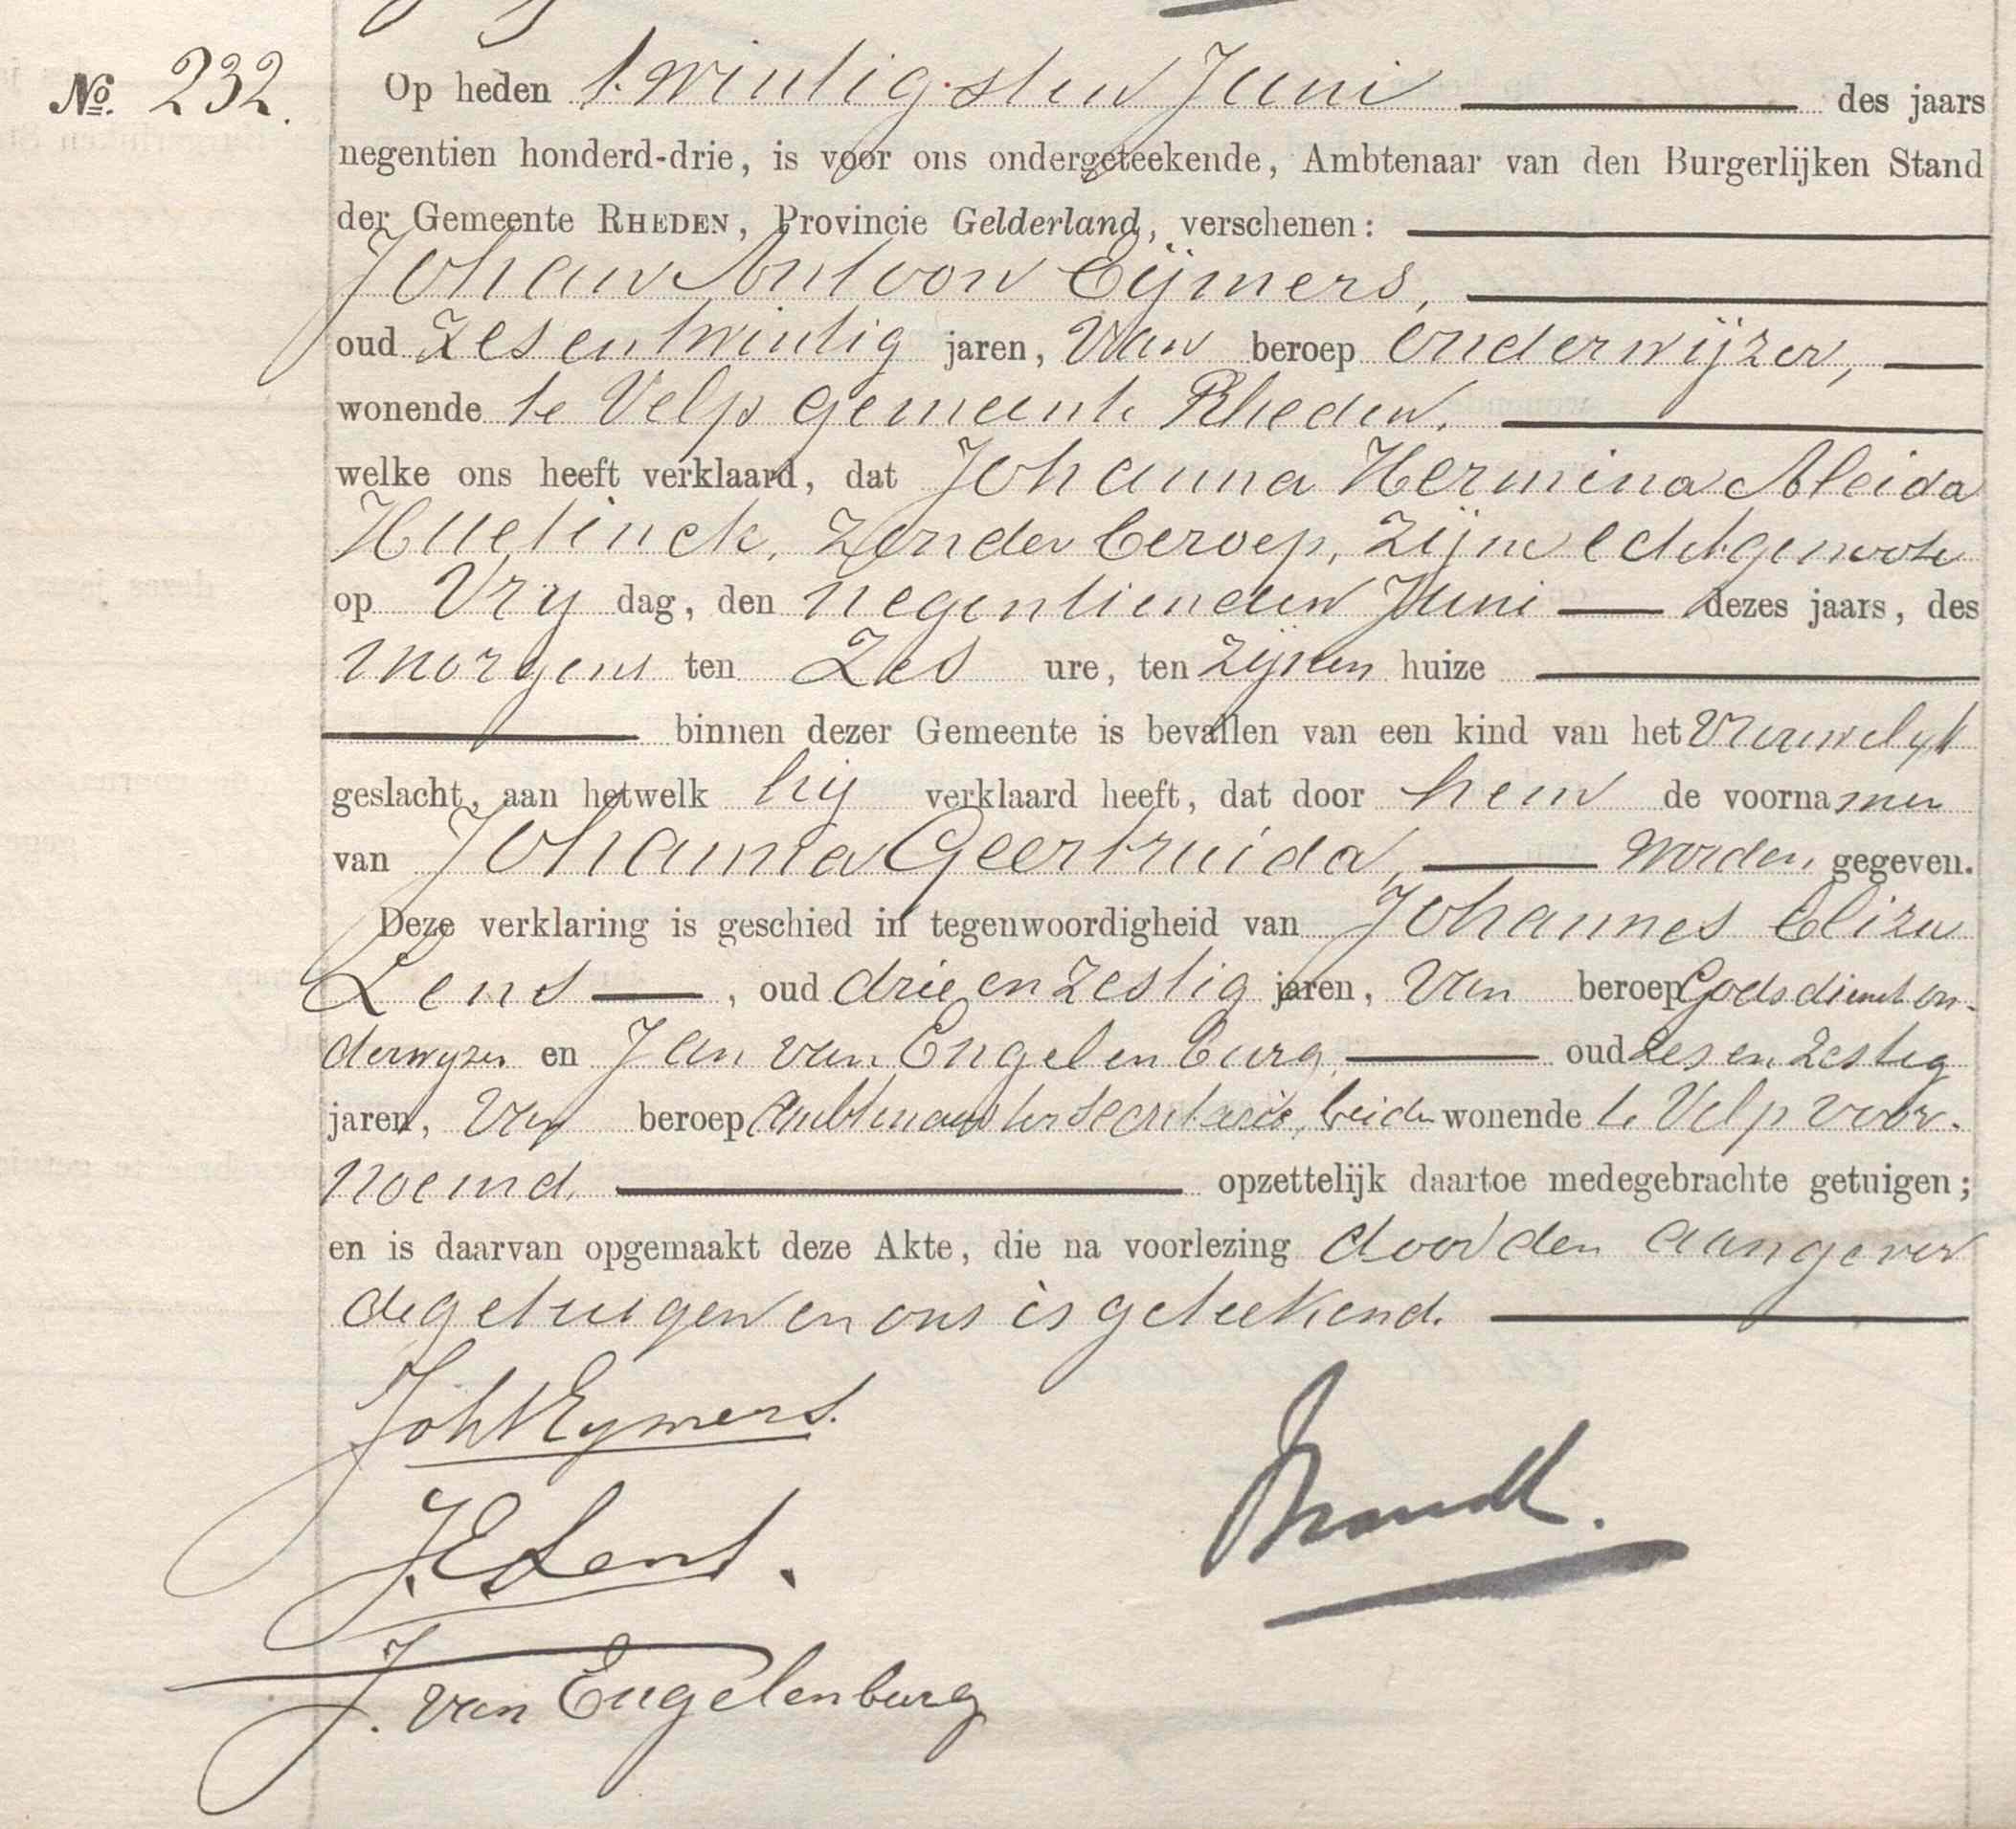 No. 232.
Op heden twintigsten Juni des jaars
negentien honderd-drie, is voor ons ondergeteekende, Ambtenaar van den Burgerlijken Stand
der Gemeente RHEDEN, Provincie Gelderland, verschenen:
Johan Antoon Eijmers,
oud zesentwintig jaren, van beroep onderwijzer,
wonende te Velp gemeente Rheden.
welke ons heeft verklaard, dat Johanna Hermina Aleida
Huetinck, zonder beroep, zijne echtgenoote
op Vrij dag, den negentienden Juni dezes jaars, des
morgens ten zes ure, ten zijnen huize
binnen dezer Gemeente is bevallen van een kind van het vrouwelijk
geslacht, aan hetwelk hij verklaard heeft, dat door hem de voornamen
van Johanna Geertruida, worden gegeven.
Deze verklaring is geschied in tegenwoordigheid van Johannes Eliza
Lens, oud drie en zestig jaren, van beroep Godsdienston-
derwijzer en Jan van Engelenburg oud zes en zestig
jaren, van beroep Ambtenaar ter secretarie, beiden wonende te Velp voor-
noemd. opzettelijk daartoe medegebrachte getuigen;
en is daarvan opgemaakt deze Akte, die na voorlezing door den aangever
de getuigen en ons is geteekend.
Joh A Eymers.
J. E Lens.
J. van Engelenburg
Brandt.